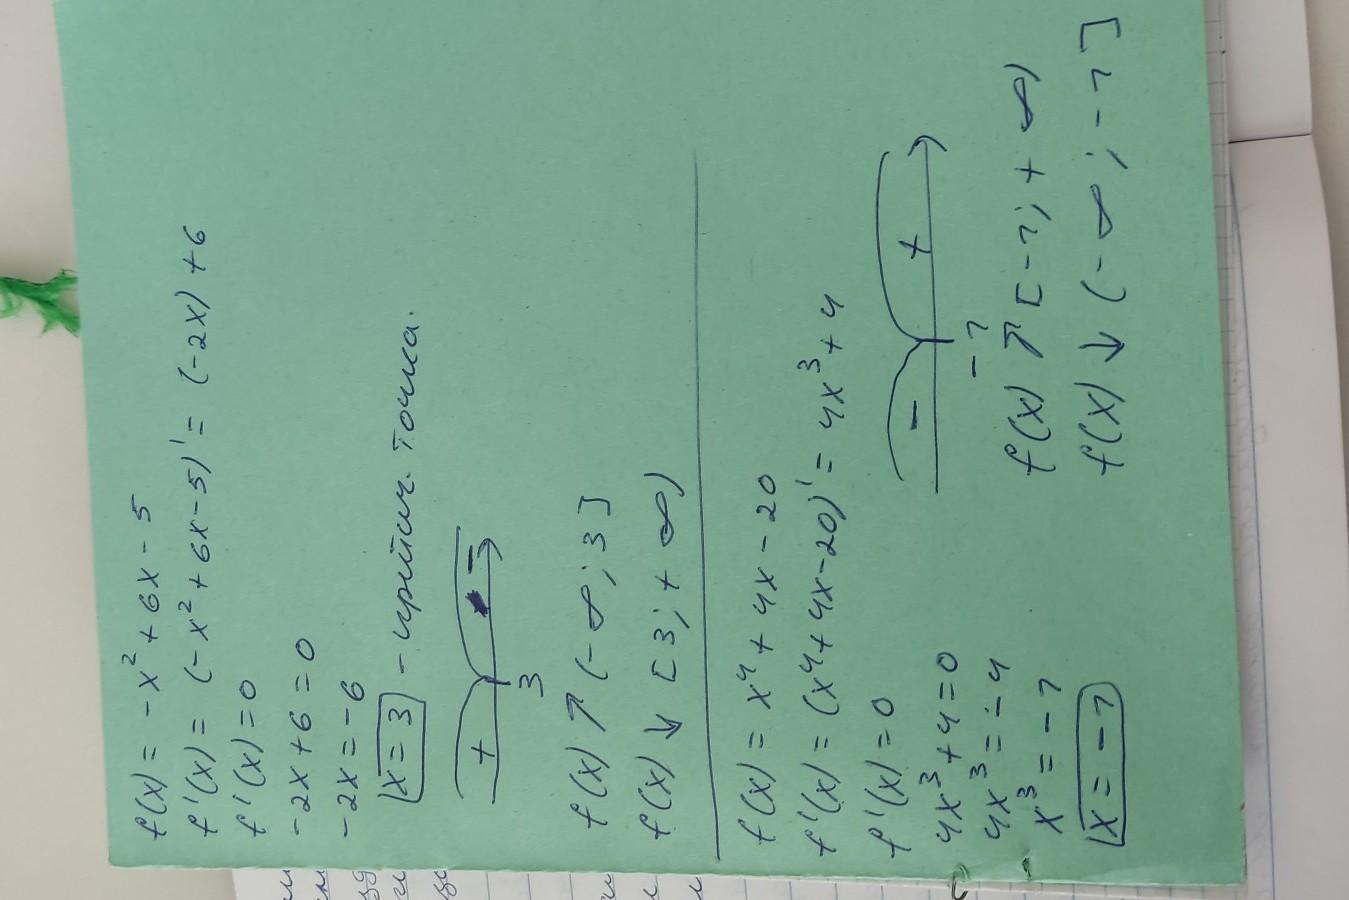 f(x) = -x² + 6x - 5
f'(x) = (-x² + 6x - 5)' = (-2x) + 6
f'(x) = 0
-2x + 6 = 0
-2x = -6
x = 3 - критич. точка.
+ -
3
f(x) ↗ (-∞; 3]
f(x) ↘ [3; +∞)
f(x) = x⁴ + 4x - 20
f'(x) = (x⁴ + 4x - 20)' = 4x³ + 4
f'(x) = 0
4x³ + 4 = 0
4x³ = -4
x³ = -1
x = -1
- +
-1
f(x) ↗ [-1; +∞)
f(x) ↓ (-∞; -1]